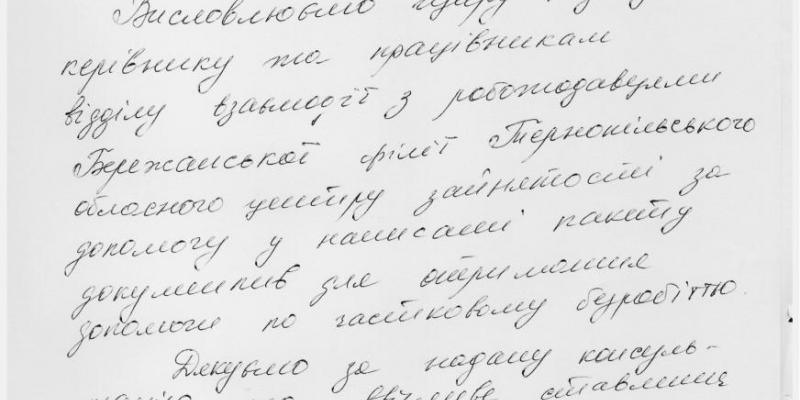 Висловлюємо щиру
керівнику та працівникам
відділу взаємодії з роботодавцями
Бережанської філії Тернопільського
обласного центру зайнятості за
допомогу у написані пакету
документів для отримання
допомоги по частковому безробіттю.
Дякуємо за надану консуль-
ставлення